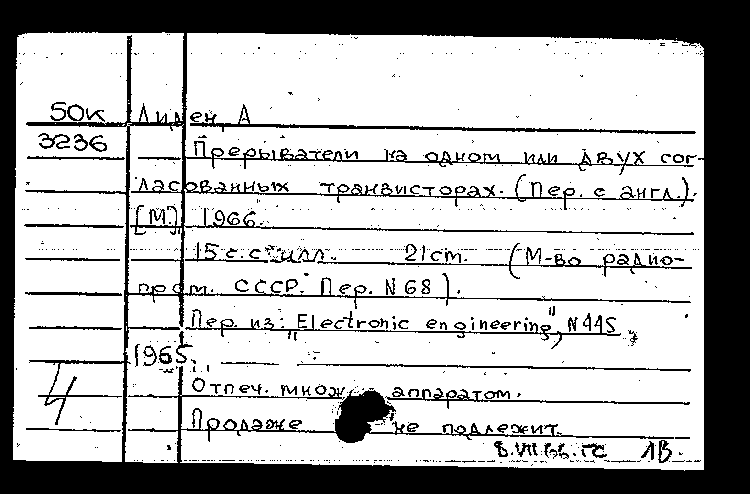 50К Лиден, А
3236
Прерыватели на одном или двух сог-
ласованных транзисторах. (Пер. с англ.).
[М.], 1966.
15 с. с илл. 21 см. (М-во радио-
пром. СССР. Пер. N 68).
Пер. из: "Electronic engineering", N 445,
1965.
Отпеч. множ. аппаратом.
Продаже не подлежит.
4
8.VII 66. ГС 1В.